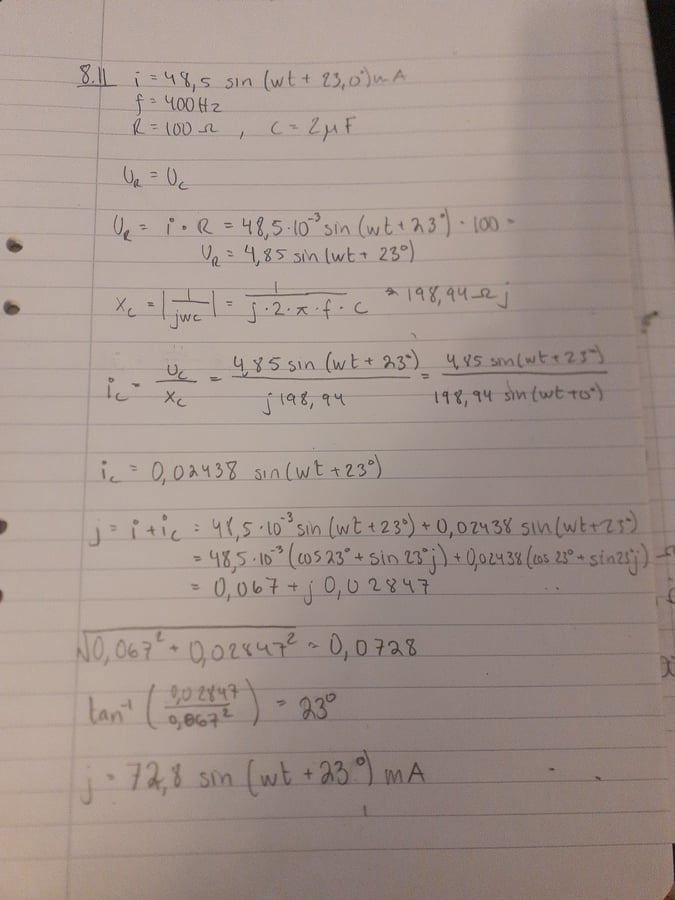 8.11 i = 48,5 sin (wt + 23,0°) mA
f = 400 Hz
R = 100 Ω , C = 2μF
U_R = U_C
U_R = i • R = 48,5·10^-3 sin (wt + 23°) · 100 =
U_R = 4,85 sin (wt + 23°)
X_C = |1/jwc| = 1/(j·2·π·f·C) = 198,94 Ω j
i_C = U_C/X_C = 4,85 sin (wt + 23°)/(j 198,94) = 4,85 sin(wt + 23°)/(198,94 sin (wt + 0°))
i_C = 0,02438 sin(wt + 23°)
j = i + i_C = 48,5·10^-3 sin (wt + 23°) + 0,02438 sin(wt + 23°)
= 48,5·10^-3 (cos 23° + sin 23° j) + 0,02438 (cos 23° + sin 23° j)
= 0,067 + j 0,02847
√(0,067^2 + 0,02847^2) = 0,0728
tan^-1 (0,02847/0,067^2) = 23°
j = 72,8 sin (wt + 23°) mA